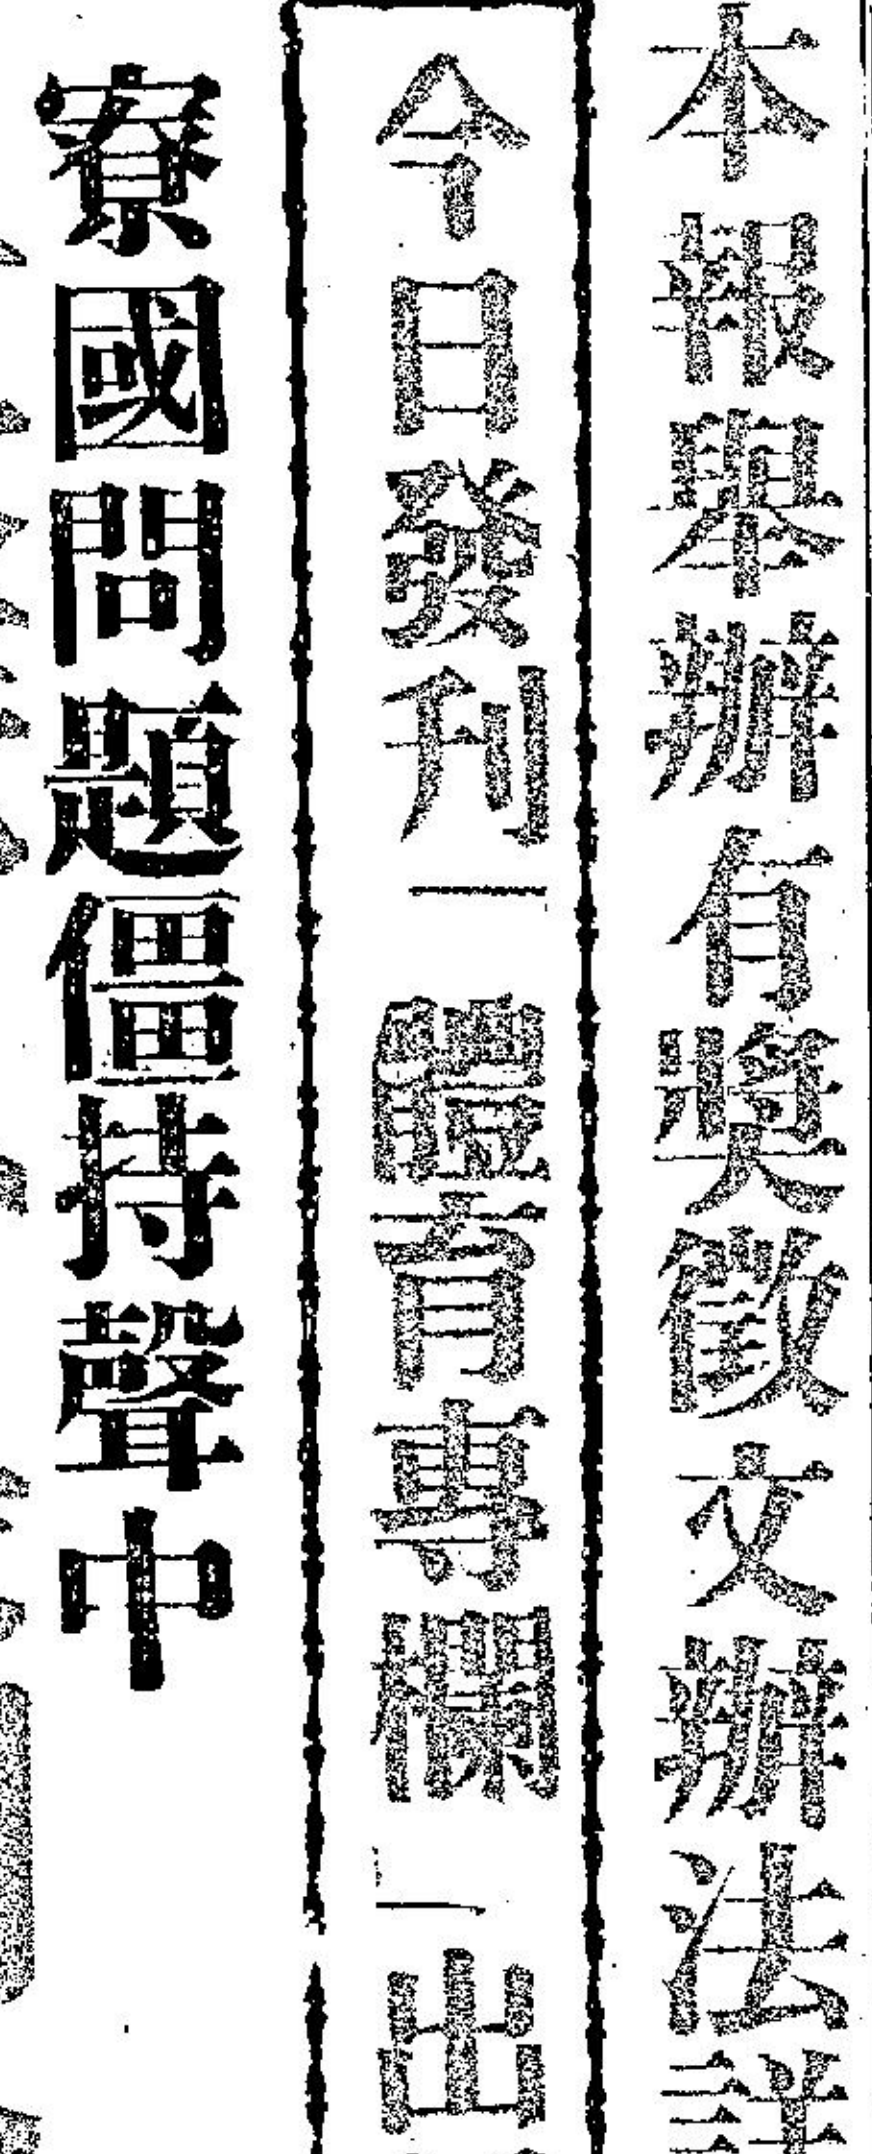 本報舉辦有獎徵文辦法詳
今日發刊「體育專欄」出
寮國問題僵持聲中